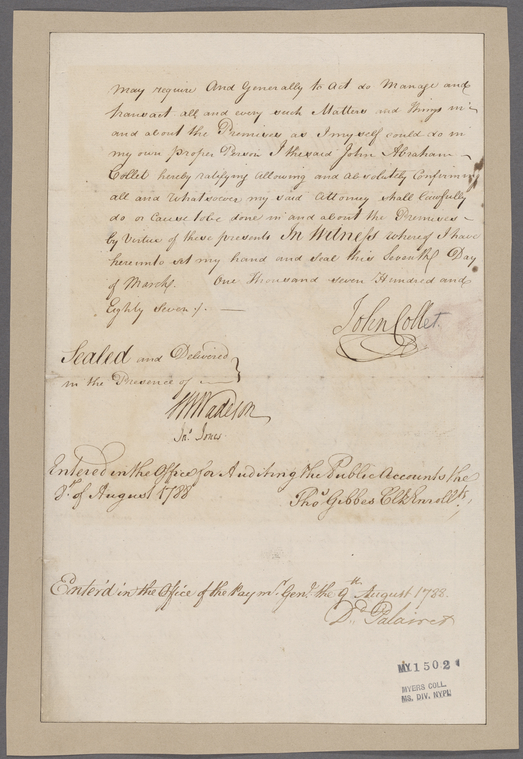 may require And Generally to Act do Manage and
transact all and every such Matters and things in
and about the Premises as I myself could do in
my own proper Person I the said John Abraham
Collet hereby ratifying Allowing and Absolutely Confirming
all and Whatsoever my said Attorney shall lawfully
do or Cause to be done in and about the Premises
by Virtue of these presents In Witness whereof I have
hereunto set my hand and seal this Seventh Day
of March One thousand seven Hundred and
Eighty Seven
John Collet
Sealed and Delivered
in the Presence of
Jnº. Jones
Entered in the Office for Auditing the Public Accounts the
of August 1788
Thoˢ Gibbes Clk Enrollᵗˢ
Enter'd in the Office of the Pay mʳ. Genˡ. the 9ᵗʰ August 1788.
Dᵈ Palairet
MY 1502
MYERS COLL.
MS. DIV. NYPL